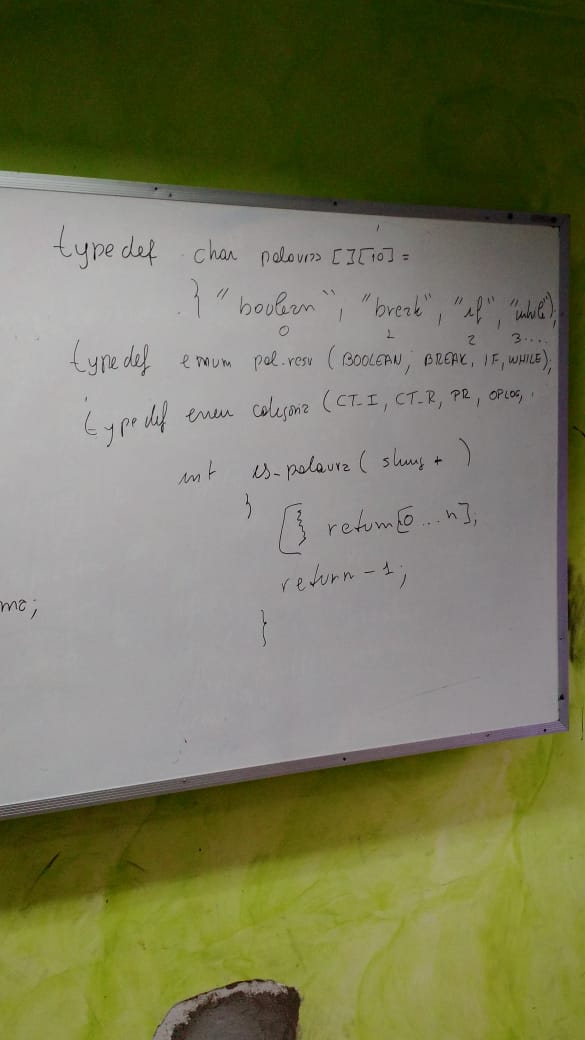 typedef char palavras [][10] =
{ "boolean", "break", "if", "while");
0 1 2 3....
typedef enum pal.resv (BOOLEAN, BREAK, IF, WHILE);
typedef enum categoria (CT-I, CT-R, PR, OPLOG,
int is-palavra ( )
}
[ return[0...n];
return -1;
mc;
}